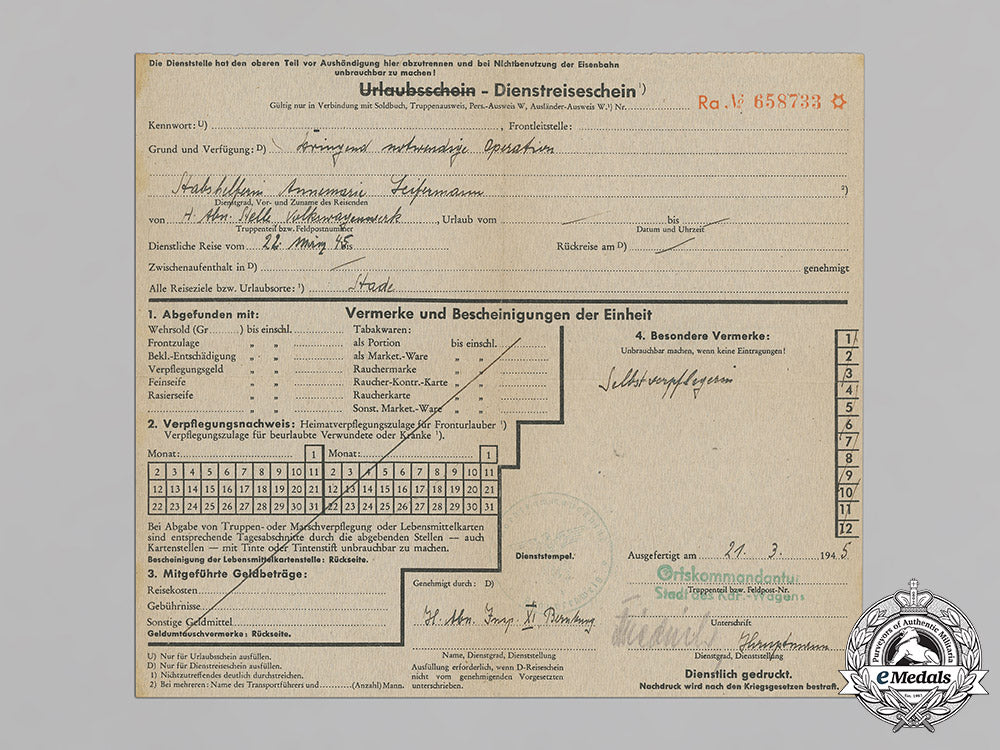 Die Dienststelle hat den oberen Teil vor Aushändigung hier abzutrennen und bei Nichtbenutzung der Eisenbahn
unbrauchbar zu machen!
Urlaubsschein - Dienstreiseschein ¹)
Gültig nur in Verbindung mit Soldbuch, Truppenausweis, Pers.-Ausweis W, Ausländer-Ausweis W.¹) Nr.
Ra № 658733
Kennwort: U) , Frontleitstelle:
Grund und Verfügung: D) dringend notwendige Operation
Stabshelferin Annemarie Seifermann ²)
Dienstgrad, Vor- und Zuname des Reisenden
von H. Abn. Stelle Volkswagenwerk , Urlaub vom bis
Truppenteil bzw. Feldpostnummer Datum und Uhrzeit
Dienstliche Reise vom 22. März 45 bis Rückreise am D)
Zwischenaufenthalt in D) genehmigt
Alle Reiseziele bzw. Urlaubsorte: ¹) Stade
Vermerke und Bescheinigungen der Einheit
1. Abgefunden mit:
Wehrsold (Gr. ) bis einschl. Tabakwaren:
Frontzulage " " als Portion bis einschl.
Bekl.-Entschädigung " " als Market.-Ware " "
Verpflegungsgeld " " Rauchermarke " "
Feinseife " " Raucher-Kontr.-Karte " "
Rasierseife " " Raucherkarte " "
" " Sonst. Market.-Ware " "
2. Verpflegungsnachweis: Heimatverpflegungszulage für Fronturlauber ¹)
Verpflegungszulage für beurlaubte Verwundete oder Kranke ¹).
Monat: 1 Monat: 1
2 3 4 5 6 7 8 9 10 11 2 3 4 5 6 7 8 9 10 11
12 13 14 15 16 17 18 19 20 21 12 13 14 15 16 17 18 19 20 21
22 23 24 25 26 27 28 29 30 31 22 23 24 25 26 27 28 29 30 31
Bei Abgabe von Truppen- oder Marschverpflegung oder Lebensmittelkarten
sind entsprechende Tagesabschnitte durch die abgebenden Stellen — auch
Kartenstellen — mit Tinte oder Tintenstift unbrauchbar zu machen.
Bescheinigung der Lebensmittelkartenstelle: Rückseite.
3. Mitgeführte Geldbeträge:
Reisekosten
Gebührnisse
Sonstige Geldmittel
Geldumtauschvermerke: Rückseite.
U) Nur für Urlaubsschein ausfüllen.
D) Nur für Dienstreiseschein ausfüllen.
1) Nichtzutreffendes deutlich durchstreichen.
2) Bei mehreren: Name des Transportführers und (Anzahl) Mann.
4. Besondere Vermerke:
Unbrauchbar machen, wenn keine Eintragungen!
Selbstverpflegerin
1
2
3
4
5
6
7
8
9
10
11
12
Dienststempel.
Ausgefertigt am 21. 3. 1945
Ortskommandantur
Stadt des KdF.-Wagens
Truppenteil bzw. Feldpost-Nr.
Genehmigt durch: D)
H. Abn. Insp. XI
Name, Dienstgrad, Dienststellung
Ausfüllung erforderlich, wenn D-Reiseschein
nicht vom genehmigenden Vorgesetzten
unterschrieben.
Unterschrift
Hauptmann
Dienstgrad, Dienststellung
Dienstlich gedruckt.
Nachdruck wird nach den Kriegsgesetzen bestraft.
Purveyors of Authentic Militaria
eMedals